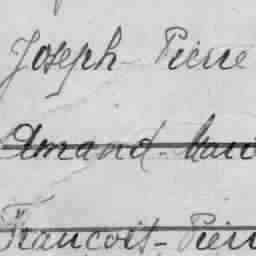 Joseph Pierre
Amand-Marie
François-Pierre